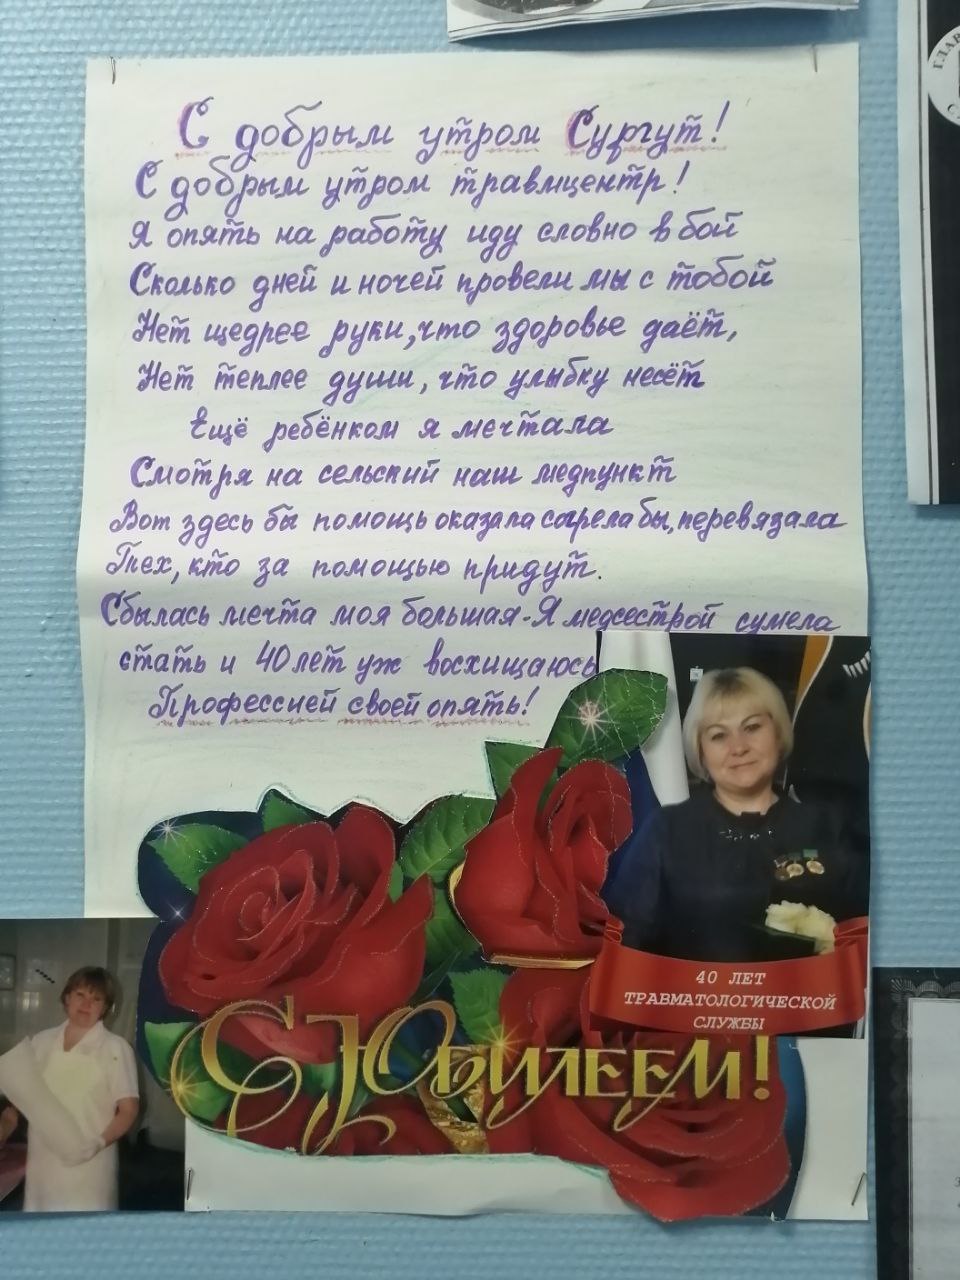 С добрым утром Сургут!
С добрым утром травмцентр!
Я опять на работу иду словно в бой
Сколько дней и ночей провели мы с тобой
Нет щедрее руки, что здоровье даёт,
Нет теплее души, что улыбку несёт
Ещё ребёнком я мечтала
Смотря на сельский наш медпункт
Вот здесь бы помощь оказала согрела бы, перевязала
Тех, кто за помощью придут.
Сбылась мечта моя большая - Я медсестрой сумела
стать и 40 лет уж восхищаюсь
Профессией своей опять!
40 ЛЕТ
ТРАВМАТОЛОГИЧЕСКОЙ
СЛУЖБЫ
С ЮБИЛЕЕМ!